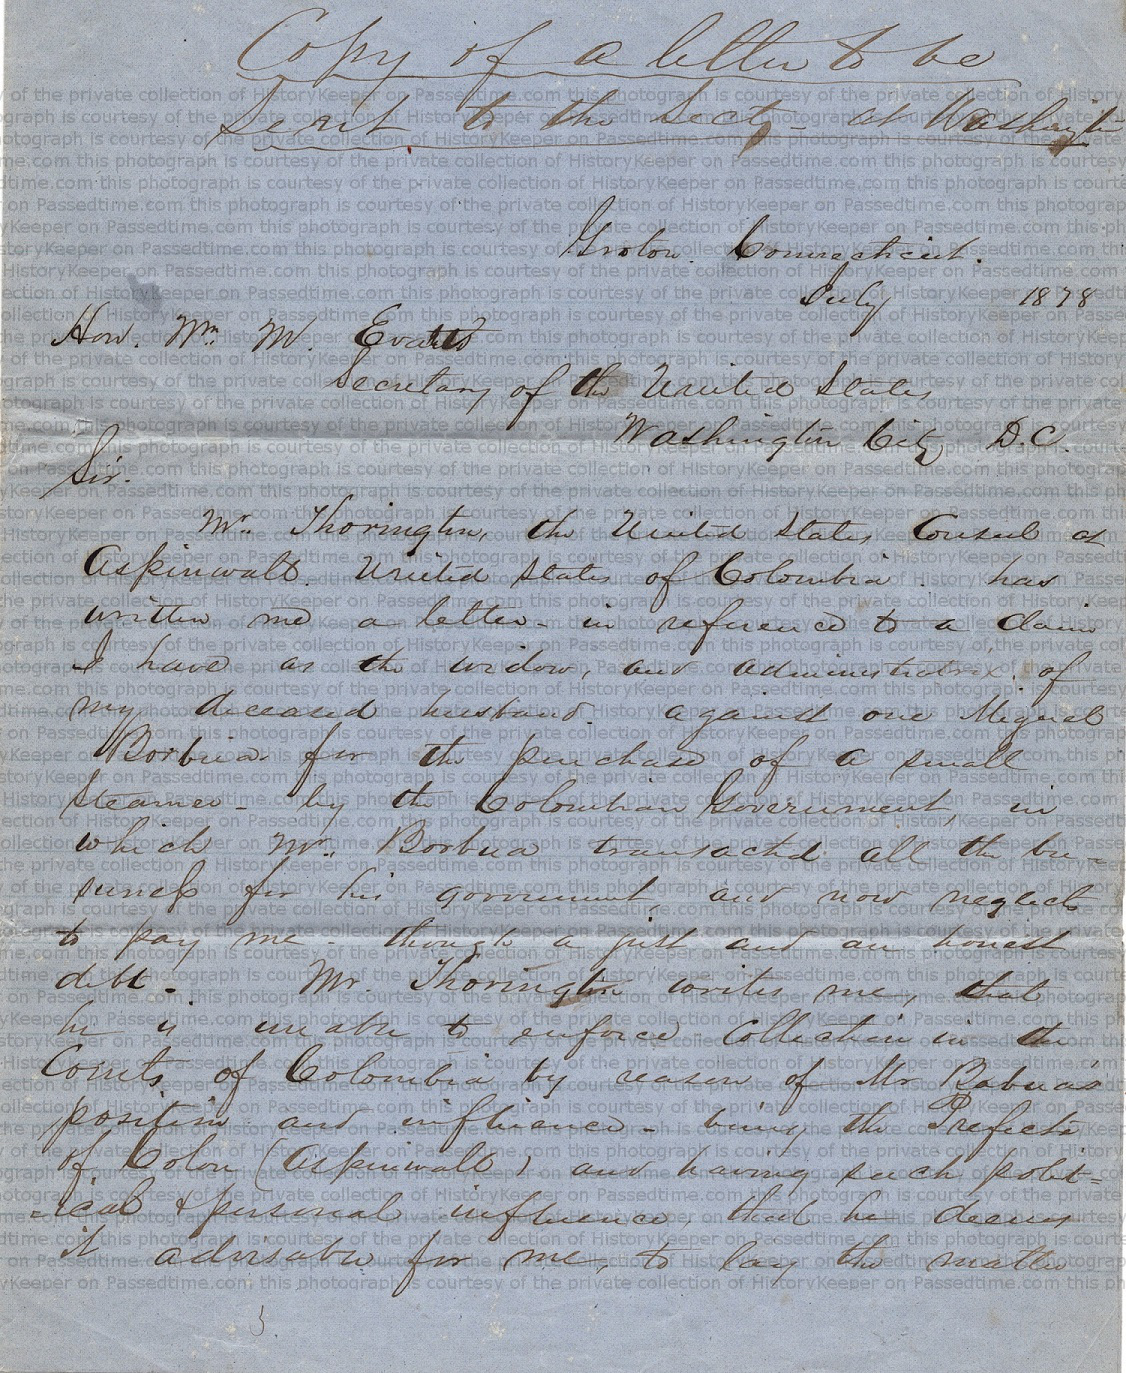 Copy of a letter to be
Sent to the Secty - at Washington
Groton. Connecticut.
July 1878
Hon. Wm. M. Evarts
Secretary of the United States
Washington City D.C.
Sir.
Mr. Thorington, the United States Consul at
Aspinwall. United States of Colombia - has
written me a letter - in reference to a claim
I have as the widow, and administratrix of
my deceased husband. against one Miguel
Borbua for the purchase of a small
Steamer by the Colombian Government, in
which Mr. Borbua transacted all the bu-
siness for his government, and now neglects
to pay me - though a just and an honest
debt - Mr. Thorington writes me, that
he is unable to enforce collection in the
Courts of Colombia by reason of Mr Babua's
position and influence - being the Prefect
of Colon (Aspinwall) and having such polit-
-ical & personal influence, that he deems
it advisable for me, to lay the matter
this photograph is courtesy of the private collection of HistoryKeeper on Passedtime.com